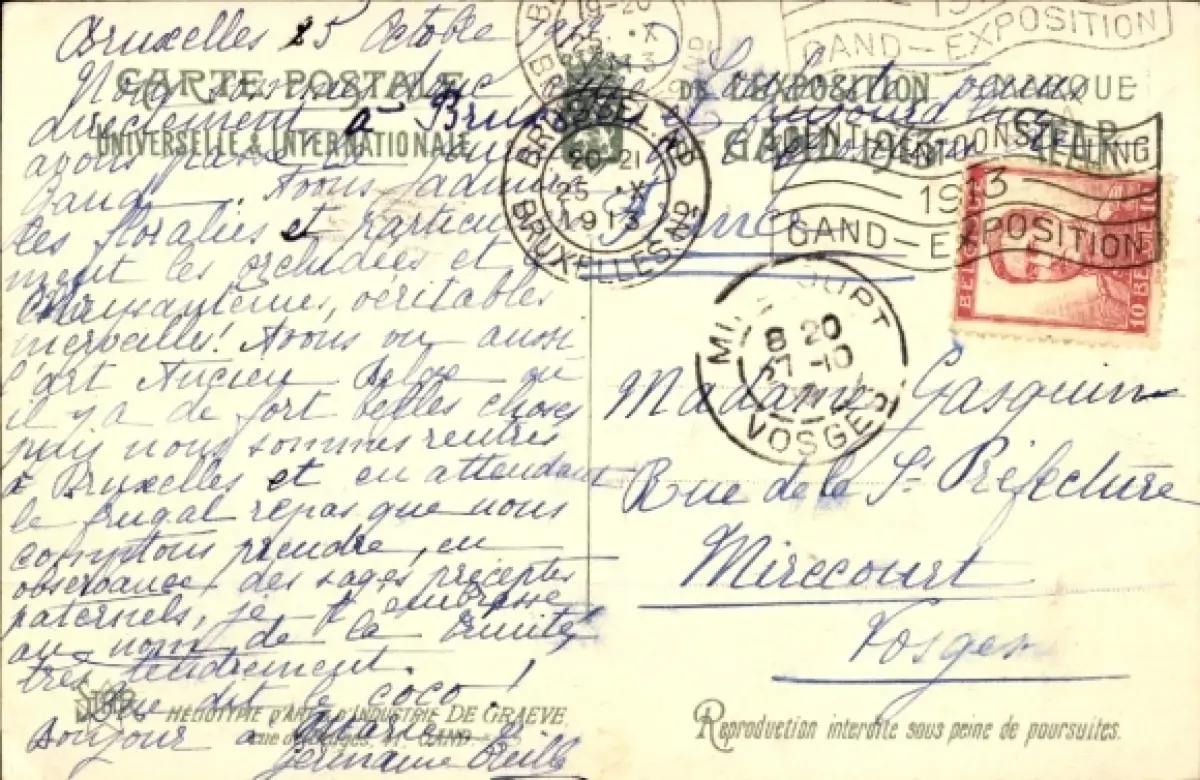 Bruxelles 25 Octobre 1913
CARTE POSTALE
UNIVERSELLE & INTERNATIONALE
DE L'EXPOSITION
GAND
Nous sommes donc
à Bruxelles et aujourd'hui
avons passé
Gand. Avons admiré
les floralies et particu
ment les orchidées et
chrysantèmes, véritables
merveilles! Avons vu aussi
l'art Ancien Belge où
il y a de fort belles choses
puis nous sommes rentrés
à Bruxelles et en attendant
le frugal repas que nous
comptons prendre, en
observance des sages préceptes
paternels, je t'embrasse
au nom de la
très tendrement.
Que dit le coco!
Bonjour à Marie et
Germaine
HÉLIOTYPIE D'ART & D'INDUSTRIE DE GRAEVE
41. GAND.
19-20
1913
GAND-EXPOSITION
BRUSSEL
20-21
25 X
1913
BRUXELLES
TENTOONSTELLING
1913
GAND-EXPOSITION
10 BE
10
France
8 20
27-10
VOSGES
Madame Gasquin
Rue de la S. Préfecture
Mirecourt
Vosges
Reproduction interdite sous peine de poursuites.